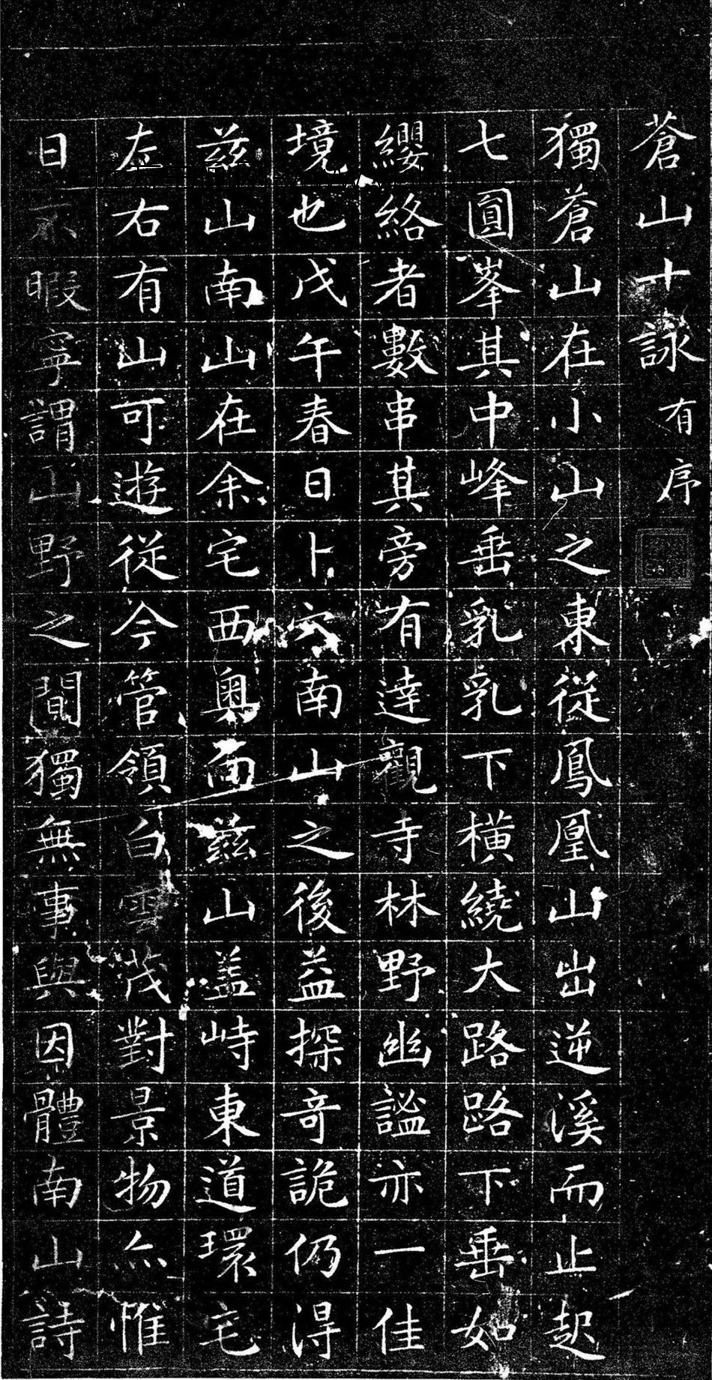 蒼山十詠有序
獨蒼山在小山之東從鳳凰山出逆溪而止起
七圓峯其中峰垂乳乳下橫繞大路路下垂如
纓絡者數串其旁有達觀寺林野幽謐亦一佳
境也戊午春日卜穴南山之後益探奇詭仍得
茲山南山在余宅西奧而茲山盖峙東道環宅
左右有山可遊從今管領白雲茂對景物亦惟
日不暇寧謂山野之間獨無事與因體南山詩